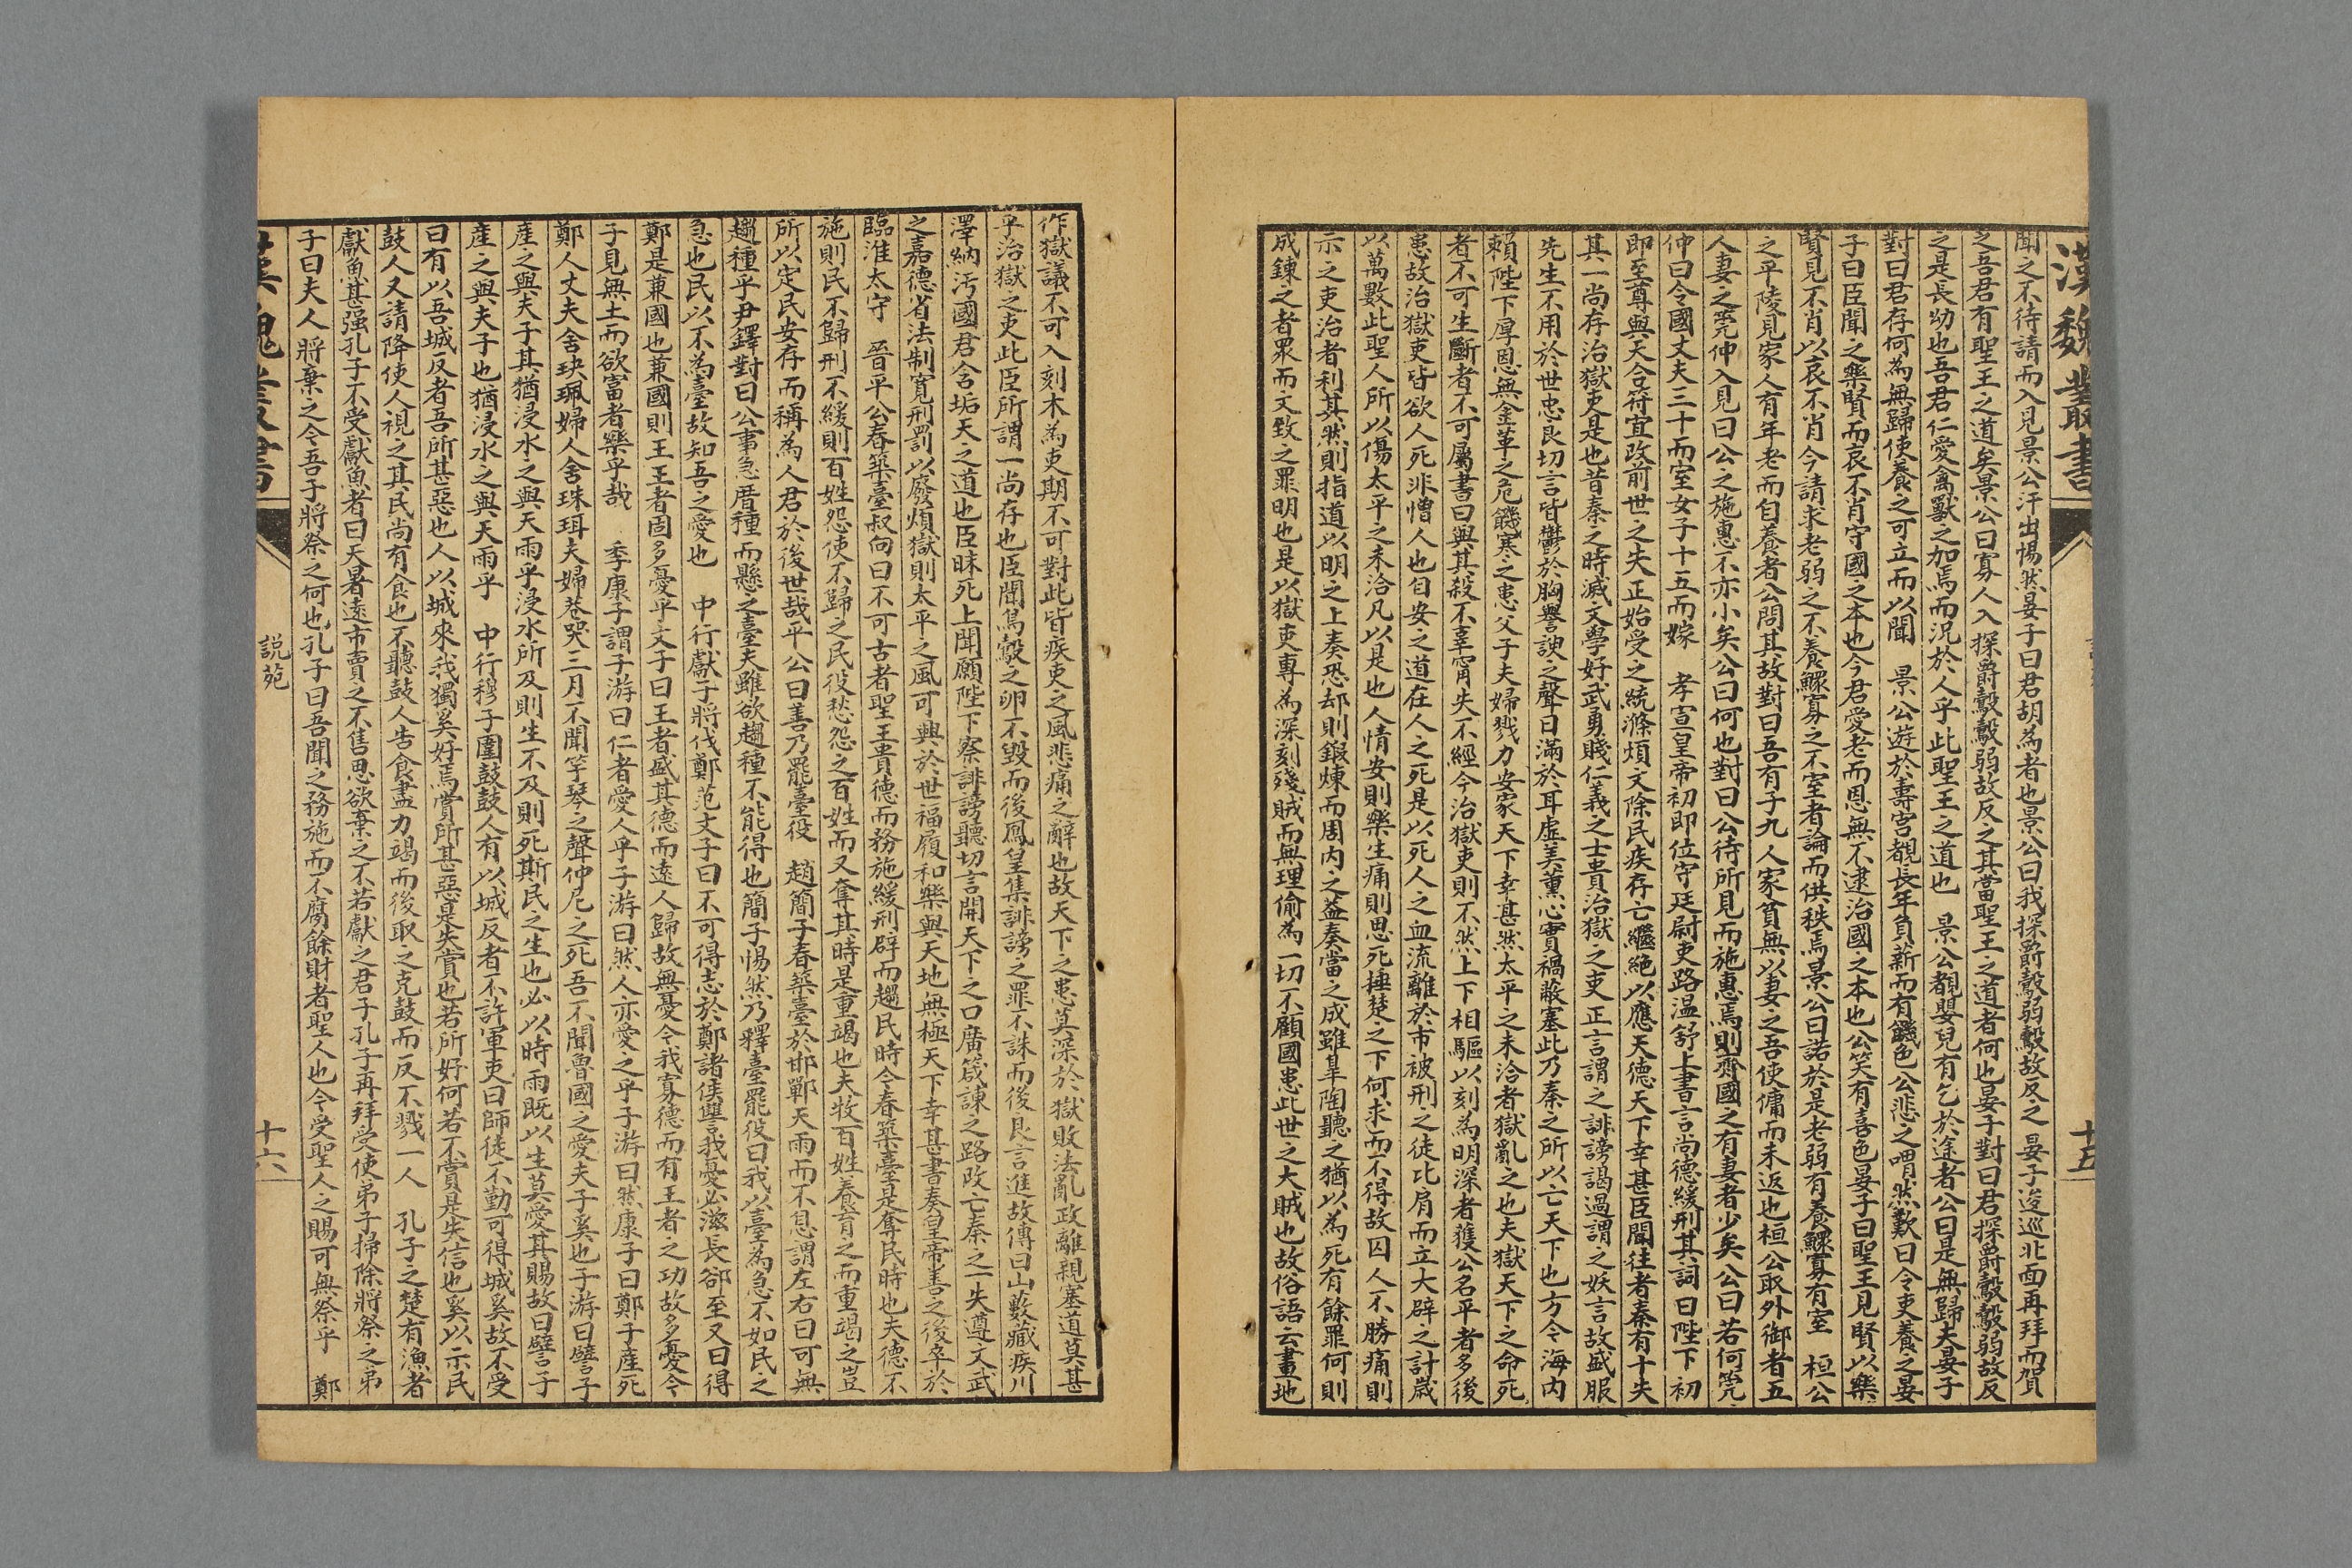 漢魏叢書
十五
聞之不待請而入見景公汗出惕然晏子曰君胡為者也景公曰我探爵鷇鷇弱故反之晏子逡巡北面再拜而賀
之吾君有聖王之道矣景公曰寡人入探爵鷇鷇弱故反之其當聖王之道者何也晏子對曰君探爵鷇鷇弱故反
之是長幼也吾君仁愛禽獸之加焉而況於人乎此聖王之道也 景公覩嬰兒有乞於途者公曰是無歸夫晏子
對曰君存何為無歸使養之可立而以聞 景公遊於壽宮覩長年負薪而有饑色公悲之喟然歎曰令吏養之晏
子曰臣聞之樂賢而哀不肖守國之本也今君愛老而恩無不逮治國之本也公笑有喜色晏子曰聖王見賢以樂
賢見不肖以哀不肖今請求老弱之不養鰥寡之不室者論而供秩焉景公曰諾於是老弱有養鰥寡有室 桓公
之平陵見家人有年老而自養者公問其故對曰吾有子九人家貧無以妻之吾使傭而未返也桓公取外御者五
人妻之筦仲入見曰公之施惠不亦小矣公曰何也對曰公待所見而施惠焉則齊國之有妻者少矣公曰若何筦
仲曰令國丈夫三十而室女子十五而嫁 孝宣皇帝初即位守廷尉吏路温舒上書言尚德緩刑其詞曰陛下初
即至尊與天合符宜改前世之失正始受之統滌煩文除民疾存亡繼絶以應天德天下幸甚臣聞往者秦有十失
其一尚存治獄吏是也昔秦之時滅文學好武勇賤仁義之士貴治獄之吏正言謂之誹謗謁過謂之妖言故盛服
先生不用於世忠良切言皆鬱於胸譽諛之聲日滿於耳虛美薫心實禍蔽塞此乃秦之所以亡天下也方今海内
賴陛下厚恩無金革之危饑寒之患父子夫婦戮力安家天下幸甚然太平之未洽者獄亂之也夫獄天下之命死
者不可生斷者不可屬書曰與其殺不辜寧失不經今治獄吏則不然上下相驅以刻為明深者獲公名平者多後
患故治獄吏皆欲人死非憎人也自安之道在人之死是以死人之血流離於市被刑之徒比肩而立大辟之計歲
以萬數此聖人所以傷太平之未洽凡以是也人情安則樂生痛則思死捶楚之下何求而不得故囚人不勝痛則
示之吏治者利其然則指道以明之上奏恐却則鍛煉而周内之蓋奏當之成雖皐陶聽之猶以為死有餘罪何則
成鍊之者眾而文致之罪明也是以獄吏專為深刻殘賊而無理偷為一切不顧國患此世之大賊也故俗語云畫地
作獄議不可入刻木為吏期不可對此皆疾吏之風悲痛之辭也故天下之患莫深於獄敗法亂政離親塞道莫甚
乎治獄之吏此臣所謂一尚存也臣聞烏鷇之卵不毀而後鳳皇集誹謗之罪不誅而後良言進故傳曰山藪藏疾川
澤納汚國君含垢天之道也臣昧死上聞願陛下察誹謗聽切言開天下之口廣箴諫之路改亡秦之一失遵文武
之嘉德省法制寛刑罰以廢煩獄則太平之風可興於世福履和樂與天地無極天下幸甚書奏皇帝善之後卒於
臨淮太守 晉平公春築臺叔向曰不可古者聖王貴德而務施緩刑辟而趨民時今春築臺是奪民時也夫德不
施則民不歸刑不緩則百姓怨使不歸之民役愁怨之百姓而又奪其時是重竭也夫牧百姓養育之而重竭之豈
所以定民安存而稱為人君於後世哉平公曰善乃罷臺役 趙簡子春築臺於邯鄲天雨而不息謂左右曰可無
趨種乎尹鐸對曰公事急厝種而懸之臺夫雖欲趨種不能得也簡子惕然乃釋臺罷役曰我以臺為急不如民之
急也民以不為臺故知吾之愛也 中行獻子將伐鄭范文子曰不可得志於鄭諸侯讐我憂必滋長郤至又曰得
鄭是兼國也兼國則王王者固多憂乎文子曰王者盛其德而遠人歸故無憂今我寡德而有王者之功故多憂今
子見無土而欲富者樂乎哉 季康子謂子游曰仁者愛人乎子游曰然人亦愛之乎子游曰然康子曰鄭子產死
鄭人丈夫舍玦珮婦人舍珠珥夫婦巷哭三月不聞竽琴之聲仲尼之死吾不聞魯國之愛夫子奚也子游曰譬子
產之與夫子其猶浸水之與天雨乎浸水所及則生不及則死斯民之生也必以時雨既以生莫愛其賜故曰譬子
產之與夫子也猶浸水之與天雨乎 中行穆子圍鼓鼓人有以城反者不許軍吏曰師徒不勤可得城奚故不受
曰有以吾城反者吾所甚惡也人以城來我獨奚好焉賞所甚惡是失賞也若所好何若不賞是失信也奚以示民
鼓人又請降使人視之其民尚有食也不聽鼓人告食盡力竭而後取之克鼓而反不戮一人 孔子之楚有漁者
獻魚甚强孔子不受獻魚者曰天暑遠市賣之不售思欲棄之不若獻之君子孔子再拜受使弟子掃除將祭之弟
子曰夫人將棄之今吾子將祭之何也孔子曰吾聞之務施而不腐餘財者聖人也今受聖人之賜可無祭乎 鄭
漢魏叢書
説苑
十六